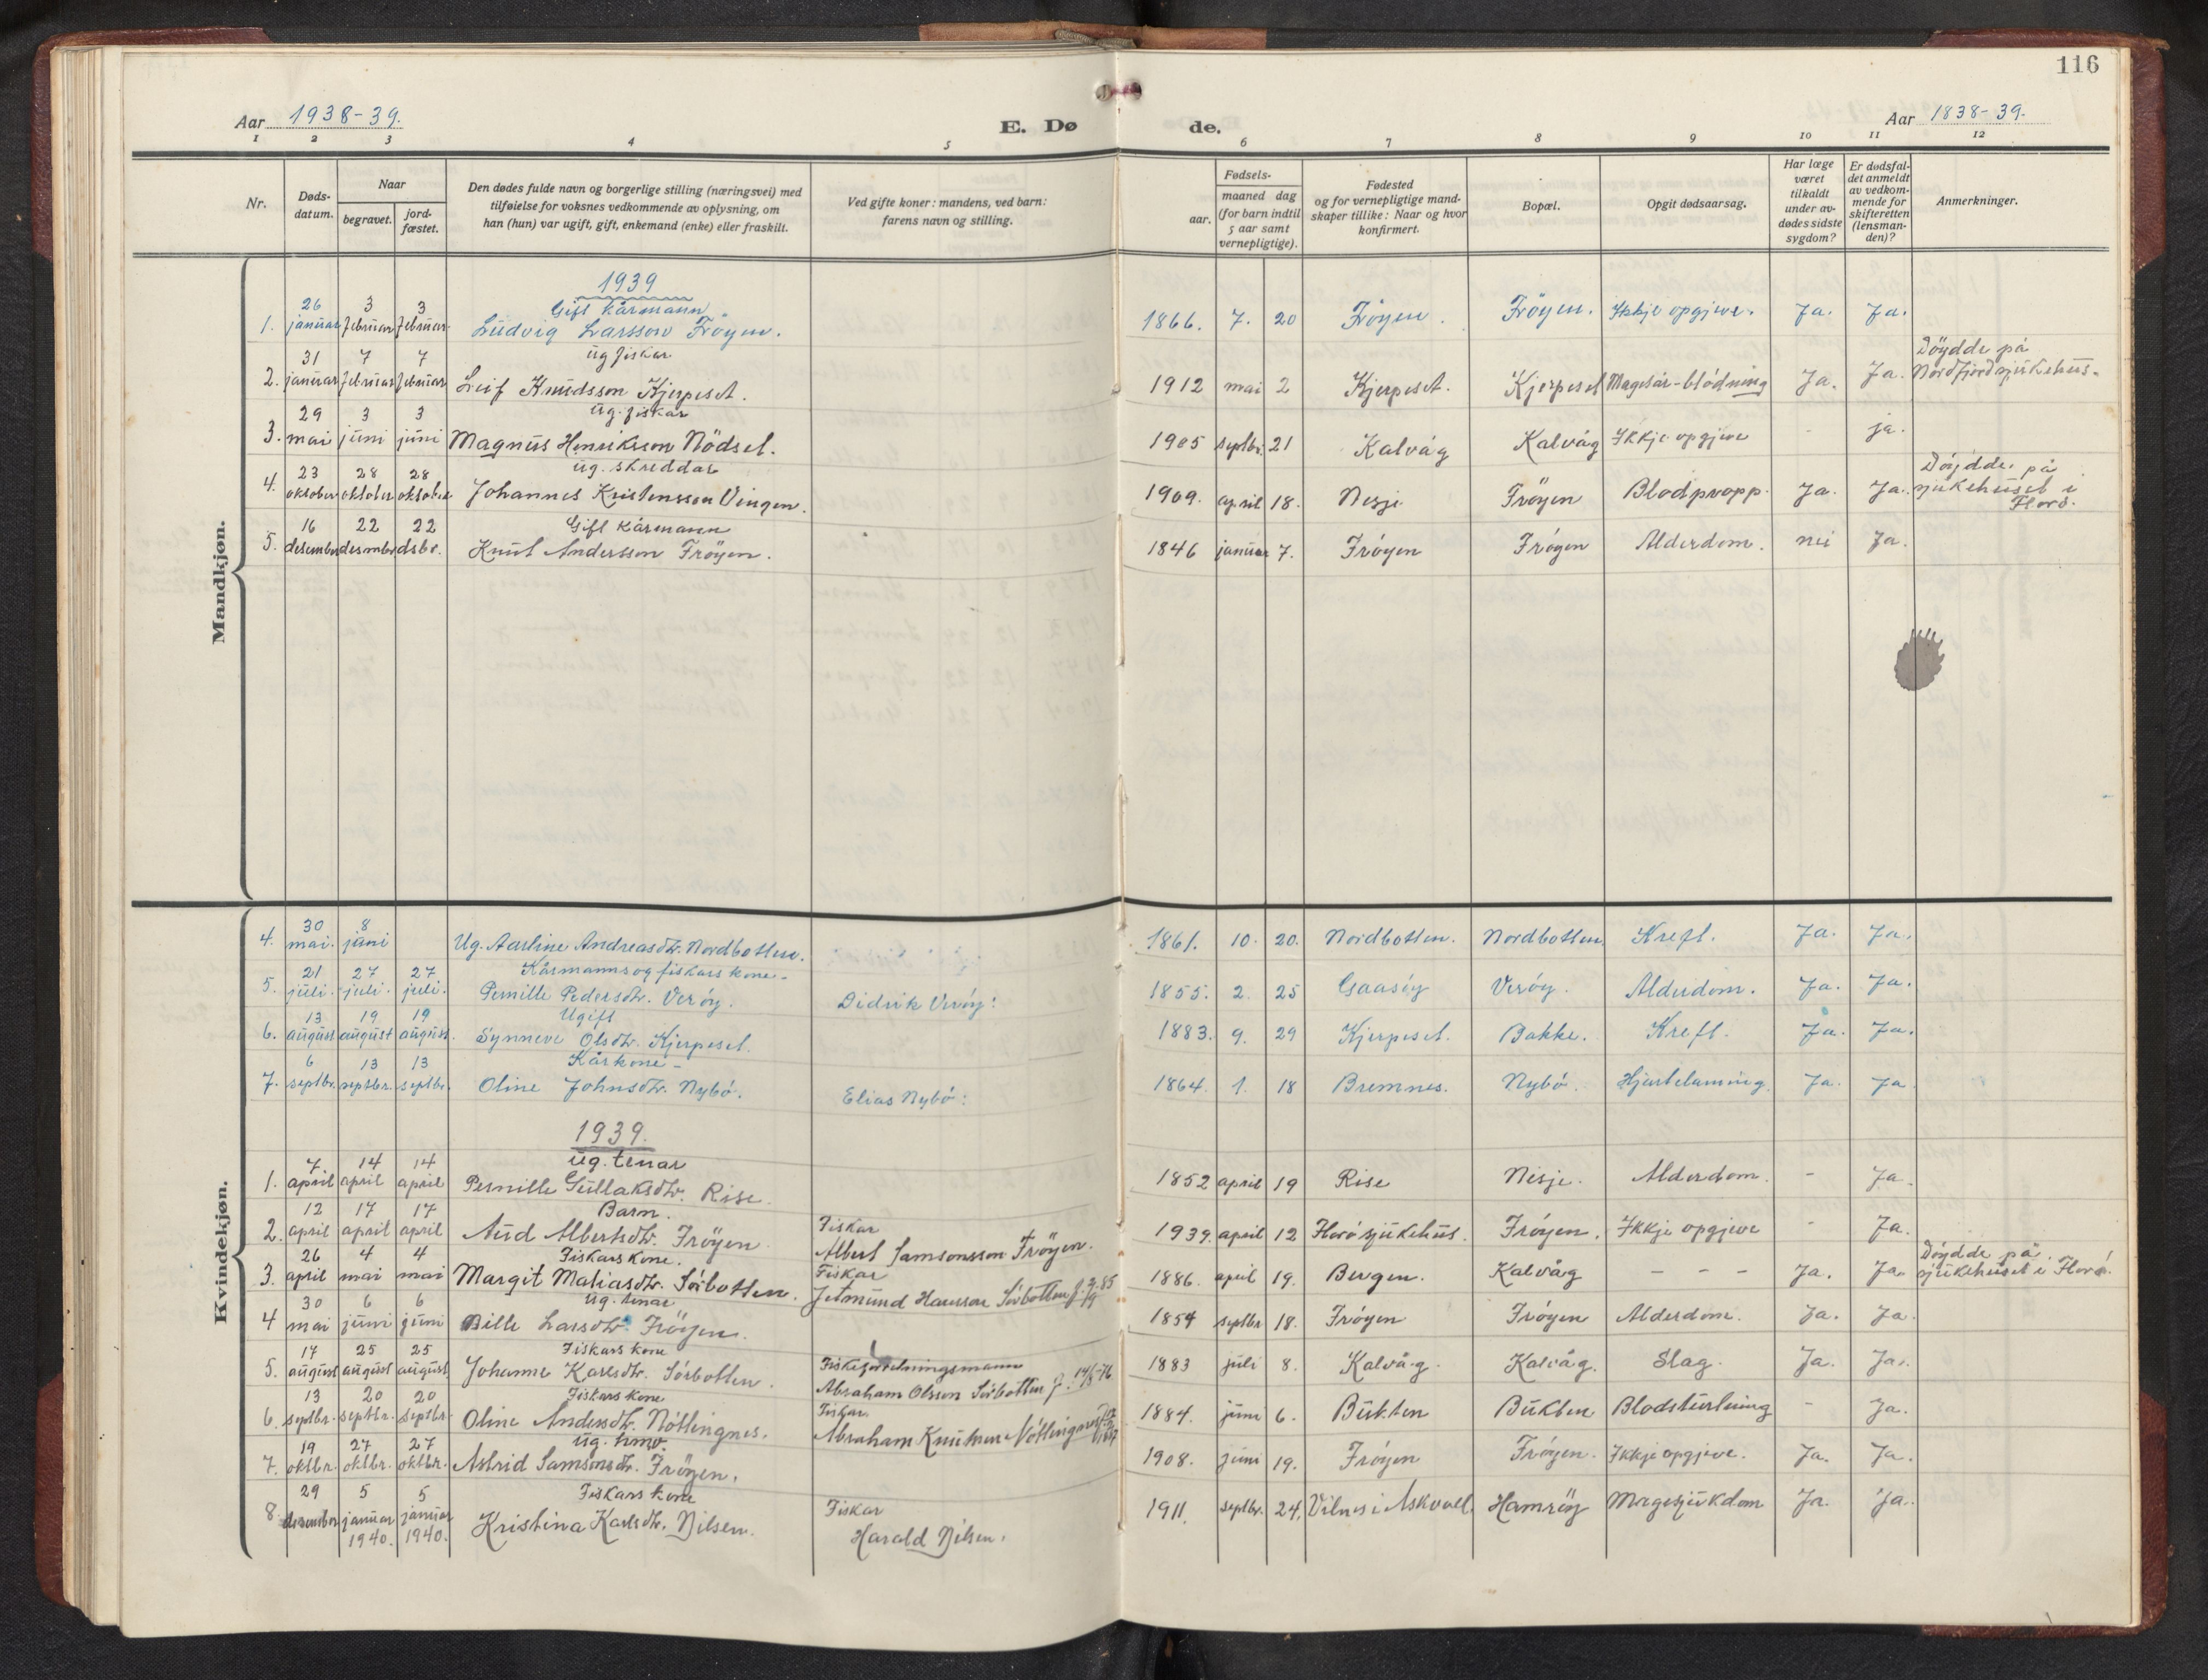 116
Aar 1938-39.
E. Dø de.
Aar 1838-39.
1 2 3 4 5 6 7 8 9 10 11 12
Nr.
Døds-
datum.
Naar
begravet.
jord-
fæstet.
Den dødes fulde navn og borgerlige stilling (næringsvei) med
tilføielse for voksnes vedkommende av oplysning, om
han (hun) var ugift, gift, enkemand (enke) eller fraskilt.
Ved gifte koner: mandens, ved barn:
farens navn og stilling.
Fødsels-
aar.
maaned dag
(for barn indtil
5 aar samt
vernepligtige).
Fødested
og for vernepligtige mand-
skaper tillike: Naar og hvor
konfirmert.
Bopæl.
Opgit dødsaarsag.
Har læge
været
tilkaldt
under av-
dødes sidste
sygdom?
Er dødsfal-
det anmeldt
av vedkom-
mende for
skifteretten
(lensman-
den)?
Anmerkninger.
Mandkjøn.
1939
26 3 3 Gift kårmann
1. januar februar februar Ludvig Larsson Fröyen. 1866. 7. 20 Fröyen. Fröyen. Ikkje opgjeve. Ja. Ja.
31 7 7 ug fiskar Döydde på
2. januar februar februar Leif Knudsson Kjerpeset. 1912 mai 2 Kjerpeset. Kjerpeset Magesår-blödning Ja. Ja. Nordfjord sjukehus.
29 3 3 ug. fiskar
3. mai juni juni Magnus Henriksson Nödset. 1905 septbr. 21 Kalvåg Kalvåg Ikkje opgjeve - ja.
23 28 28 ug. skreddar Döydde på
4. oktober oktober oktober Johannes Kristensson Vingen. 1909. april 18. Nesje Fröyen Blodpropp. Ja. Ja. sjukehuset i
Florö.
16 22 22 Gift kårmann
5. desember desmbr dsbr. Knut Andersson Fröyen. 1846 januar 7. Fröyen Fröyen Alderdom. nei Ja.
Kvindekjøn.
30 8
4. mai. juni Ug. Aarline Andreasdtr. Nordbotten. 1861. 10. 20. Nordbotten. Nordbotten. Kreft. Ja. Ja.
21 27 27 Kårmanns og fiskars kone-
5. juli. juli. juli. Pernille Pedersdtr. Veröy. Didrik Veröy: 1855. 2. 25 Gaasöy Veröy. Alderdom. Ja. Ja.
13 19 19 Ugift
6. august august august. Synneve Olsdtr. Kjerpeset. 1883. 9. 29 Kjerpeset. Bakke. Kreft. Ja. Ja.
6 13 13 Kårkone-
7. septbr. septbr. septbr. Oline Johnsdtr. Nybö. Elias Nybö: 1864. 1. 18 Bremnes. Nybö. Hjartelaming. Ja. Ja
1939.
7 14 14 ug. tenar
1. april april april Pernille Gullaksdtr. Rise. 1852 april 19 Rise Nesje. Alderdom. - Ja.
12 17 17 Barn.
2. april april april Aud Albertsdtr. Fröyen Fiskar
Albert Samsonsson Fröyen. 1939. april 12 Florö sjukehus. Fröyen. Ikkje opgjeve - Ja.
26 4 4 Fiskars kone. Döydde på
3. april mai mai Margit Matiasdtr. Sörbotten. Fiskar
Jetmund Hansson Sörbotten f. 3/9 85 1886. april 19. Bergen. Kalvåg - - - Ja. Ja. sjukehuset i Florö.
30 6 6 ug. tenar
4 mai juni juni Bille Larsdtr. Fröyen. 1854 septbr 18. Fröyen Fröyen Alderdom. Ja. Ja
17 25 25 Fiskars kone
5. august august august Johanne Karlsdtr. Sörbotten. Fiskeforretningsmann
Abraham Olsson Sörbotten f. 14/5-76 1883 juli 8. Kalvåg. Kalvåg. Slag. Ja. Ja.
13 20 20 Fiskars kone
6. septbr. septbr. septbr. Oline Andersdtr. Nöttingnes. Fiskar.
Abraham Knutsen Nöttingnes 1884. juni 6. Bukten Bukten Blodstyrtning - Ja.
19 27 27 ug.
7. oktbr. oktbr. oktbr. Astrid Samsonsdtr. Fröyen. 1908. juni 19. Fröyen Fröyen. Ikkje opgjeve. Ja. Ja.
29 5 5 Fiskars kone
8. desember januar januar Kristina Karlsdtr. Nilsen. Fiskar
1940. 1940. Harald Nilsen. 1911. septbr. 24. Vilnes i Askvoll. Hamröy Magesjukdom Ja. Ja.